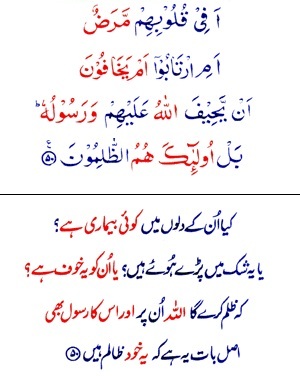 اَفِیْ قُلُوْبِهِمْ مَّرَضٌ
اَمِ ارْتَابُوْۤا اَمْ یَخَافُوْنَ
اَنْ یَّحِیْفَ اللّٰهُ عَلَیْهِمْ وَرَسُوْلُهٗ ؕ
بَلْ اُولٰٓىِٕكَ هُمُ الظّٰلِمُوْنَ ﴿۵۰﴾
کیا اُن کے دلوں میں کوئی بیماری ہے؟
یا یہ شک میں پڑے ہُوئے ہیں؟ یا اُن کو یہ خوف ہے؟
کہ ظلم کرے گا اللہ اُن پر اور اس کا رسول بھی
اصل بات یہ ہے کہ یہ خود ظالم ہیں ﴿۵۰﴾